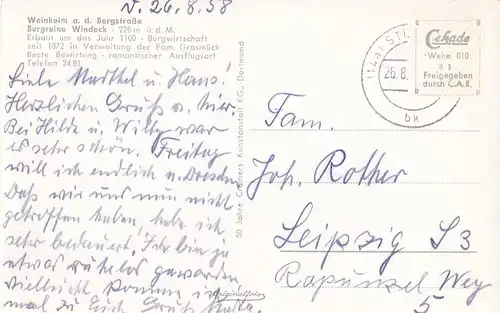 v. 26.8.58
Weinheim a. d. Bergstraße
Burgruine Windeck - 220 m ü. d. M.
Erbaut um das Jahr 1100 - Burgwirtschaft
seit 1872 in Verwaltung der Fam. Grasmück.
Beste Bewirtung - romantischer Ausflugsort
Telefon 2481
Liebe Marthel u. Hans!
Herzlichen Gruß v. hier.
Bei Hilde u. Willy war
es sehr schön. Freitag
will ich endlich n. Dresden.
Daß wir uns nun nicht
getroffen haben, habe ich
sehr bedauert. Ich bin ja
etwas ruhelos geworden,
vielleicht komme ich
mal zu Euch. Gruß
Originalfoto
50 Jahre Cramers Kunstanstalt KG., Dortmund
26.8.
bk
Cekade
Wehe 010
Freigegeben
durch C.A.B.
Fam.
Joh. Rother
Leipzig S 3
Rapunzel Weg
5